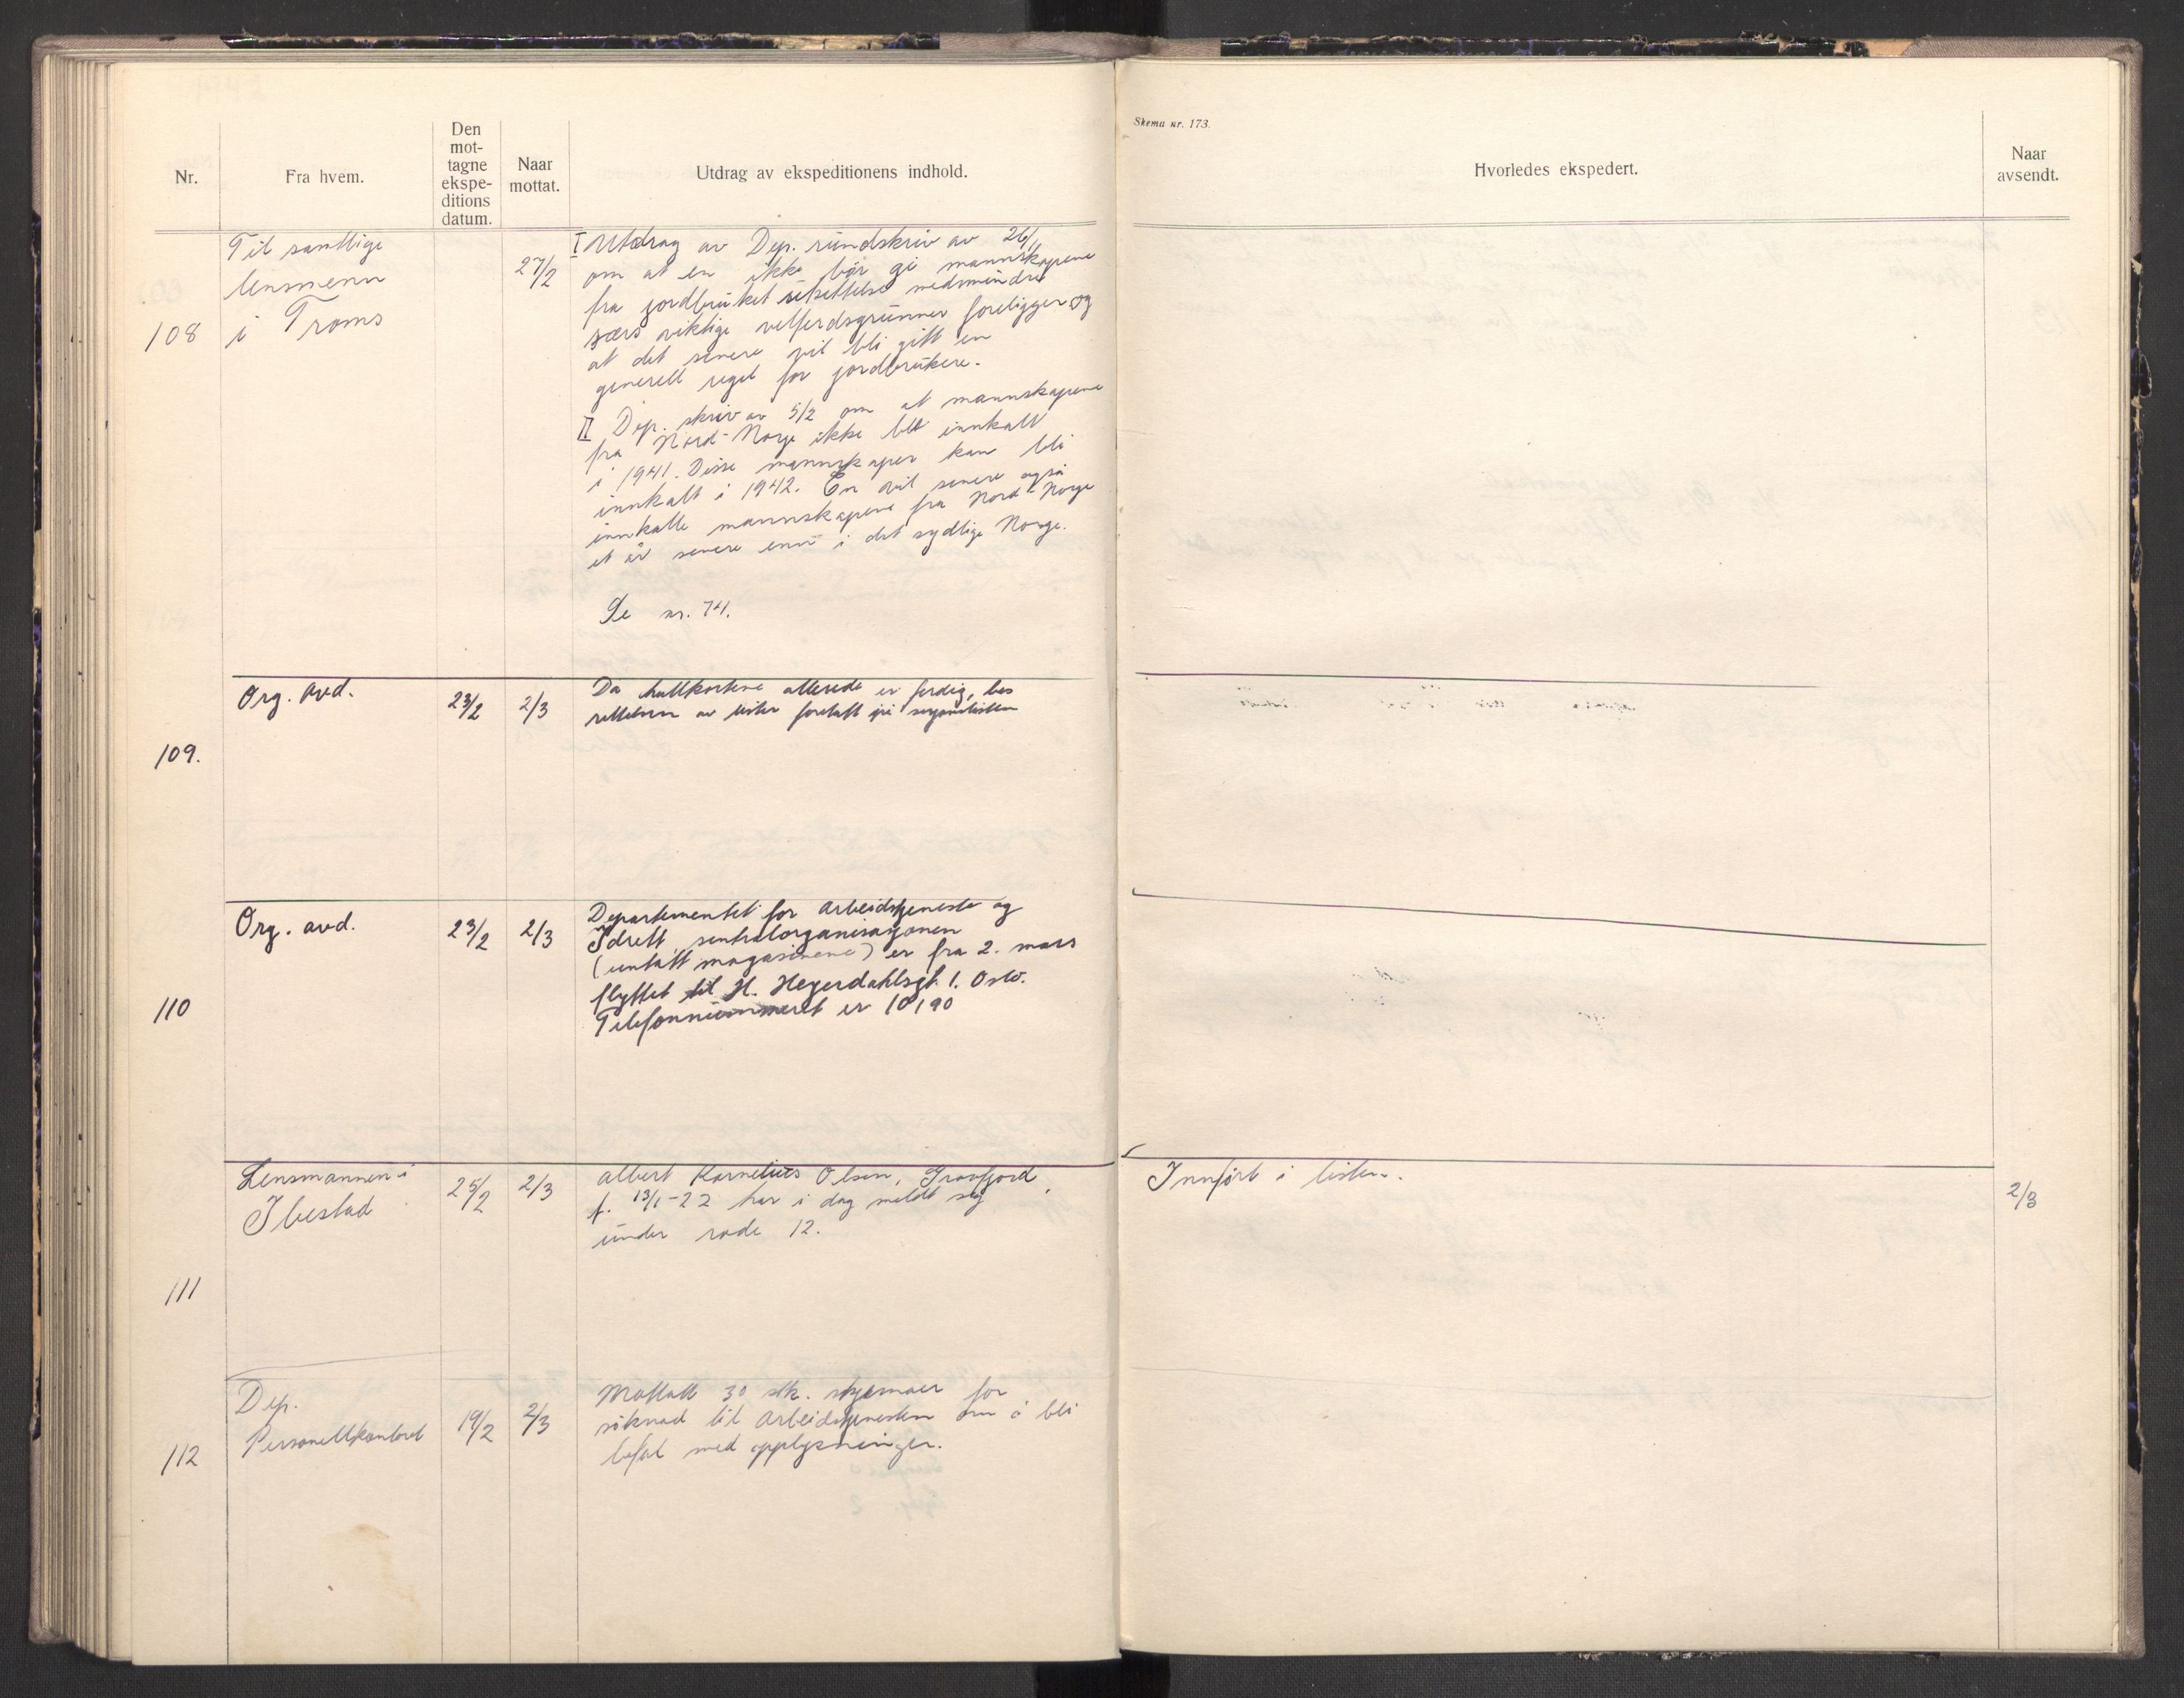 Skema nr. 173.
Nr.
Fra hvem.
Den
mot-
tagne
ekspe-
ditions
datum.
Naar
mottat.
Utdrag av ekspeditionens indhold.
Hvorledes ekspedert.
Naar
avsendt.
108
Til samtlige
lensmenn
i Troms
27/2
I Utdrag av Dep. rundskriv av 26/1
om at en ikke bør gi mannskapene
fra jordbruket utsettelse medmindre
særs viktige velferdsgrunner foreligger og
at det senere vil bli gitt en
generell regel for jordbrukere.
II Dep. skriv av 5/2 om at mannskapene
fra Nord-Norge ikke ble innkalt
i 1941. Disse mannskaper kan bli
innkalt i 1942. En vil senere også
innkalle mannskapene fra Nord-Norge
et år senere enn i det sydlige Norge.
Se nr. 74.
109.
Org. avd.
23/2
2/3
Da hullkortene allerede er ferdig, bes
rettelsen av lister foretatt
110
Org. avd.
23/2
2/3
Departementet for Arbeidstjeneste og
Idrett, sentralorganisasjonen
(untatt magasinene) er fra 2. mars
flyttet til H. Heyerdahlsgt. 1. Oslo.
Telefonnummeret er 10190
111
Lensmannen i
Ibestad
25/2
2/3
Albert Kornelius Olsen,
f. 13/1-22 har i dag meldt seg
under rode 12.
Innført i listen.
2/3
112
Dep.
Personellkontoret
19/2
2/3
Mottatt 30 stk. skjemaer for
søknad til Arbeidstjenesten om å bli
befal med opplysninger.